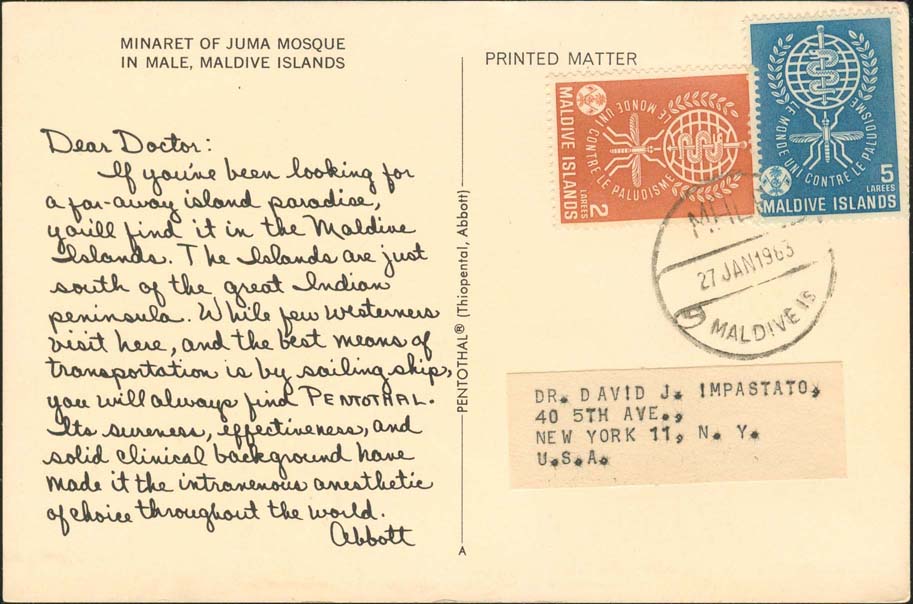 MINARET OF JUMA MOSQUE
IN MALE, MALDIVE ISLANDS
Dear Doctor:
If you've been looking for
a far-away island paradise,
you'll find it in the Maldive
Islands. The Islands are just
south of the great Indian
peninsula. While few Westerners
visit here, and the best means of
transportation is by sailing ship,
you will always find PENTOTHAL.
Its sureness, effectiveness, and
solid clinical background have
made it the intravenous anesthetic
of choice throughout the world.
Abbott
PENTOTHAL® (Thiopental, Abbott)
A
PRINTED MATTER
MALDIVE ISLANDS
LE MONDE UNI CONTRE LE PALUDISME
2
LAREES
LE MONDE UNI CONTRE LE PALUDISME
5
LAREES
MALDIVE ISLANDS
27 JAN 1963
MALDIVE IS
DR. DAVID J. IMPASTATO,
40 5TH AVE.,
NEW YORK 11, N. Y.
U.S.A.